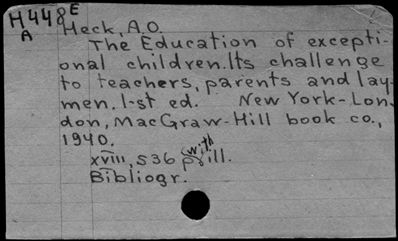 H448E
A
Heck, A.O.
The Education of excepti-
onal children. Its challenge
to teachers, parents and lay-
men. 1-st ed. New York-Lon-
don, MacGraw-Hill book co.,
1940.
xviii, 536 p. with ill.
Bibliogr.